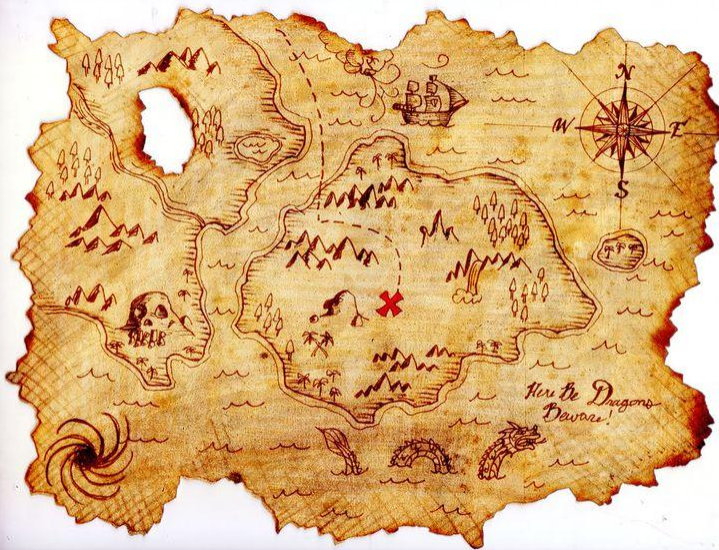 N
W E
S
Here Be Dragons
Beware!